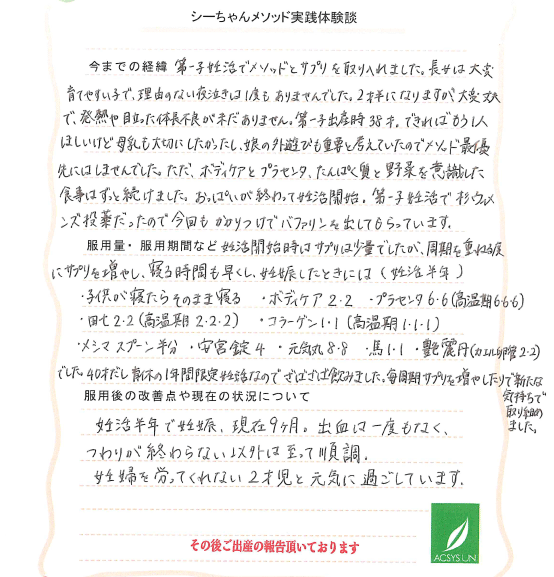 シーちゃんメソッド実践体験談
今までの経緯 第一子妊活でメソッドとサプリを取り入れました。長女は大変
育てやすい子で、理由のない夜泣きは1度もありませんでした。2才半になりますが大変丈夫
で、発熱や目立った体長不良が未だありません。第一子出産時38才。できればもう1人
ほしいけど母乳も大切にしたかったし、娘の外遊びも重要と考えていたのでメソッド最優
先にはしませんでした。ただ、ボディケアとプラセンタ、たんぱく質と野菜を意識した
食事はずっと続けました。おっぱいが終わって妊活開始。第一子妊活で杉ウィメ
ンズ投薬だったので今回もかかりつけでバファリンを出してもらっています。
服用量・服用期間など 妊活開始時はサプリは少量でしたが、周期を重ねる度
にサプリを増やし、寝る時間も早くし、妊娠したときには(妊活半年)
・子供が寝たらそのまま寝る ・ボディケア2・2 ・プラセンタ6・6(高温期6・6・6)
・田七2・2(高温期2・2・2) ・コラーゲン1・1(高温期1・1・1)
・メシマスプーン半分 ・安宮錠4 ・元気丸8・8 ・馬1・1 ・艶麗丹(カエル卵管2・2)
でした。40才だし育休の1年間限定妊活なのでざばざば飲みました。毎周期サプリを増やしたりで新たな
気持ちで
取り組め
ました。
服用後の改善点や現在の状況について
妊活半年で妊娠、現在9ヶ月。出血は一度もなく、
つわりが終わらない以外は至って順調。
妊婦を労ってくれない2才児と元気に過ごしています。
その後ご出産の報告頂いております
ACSYSUN